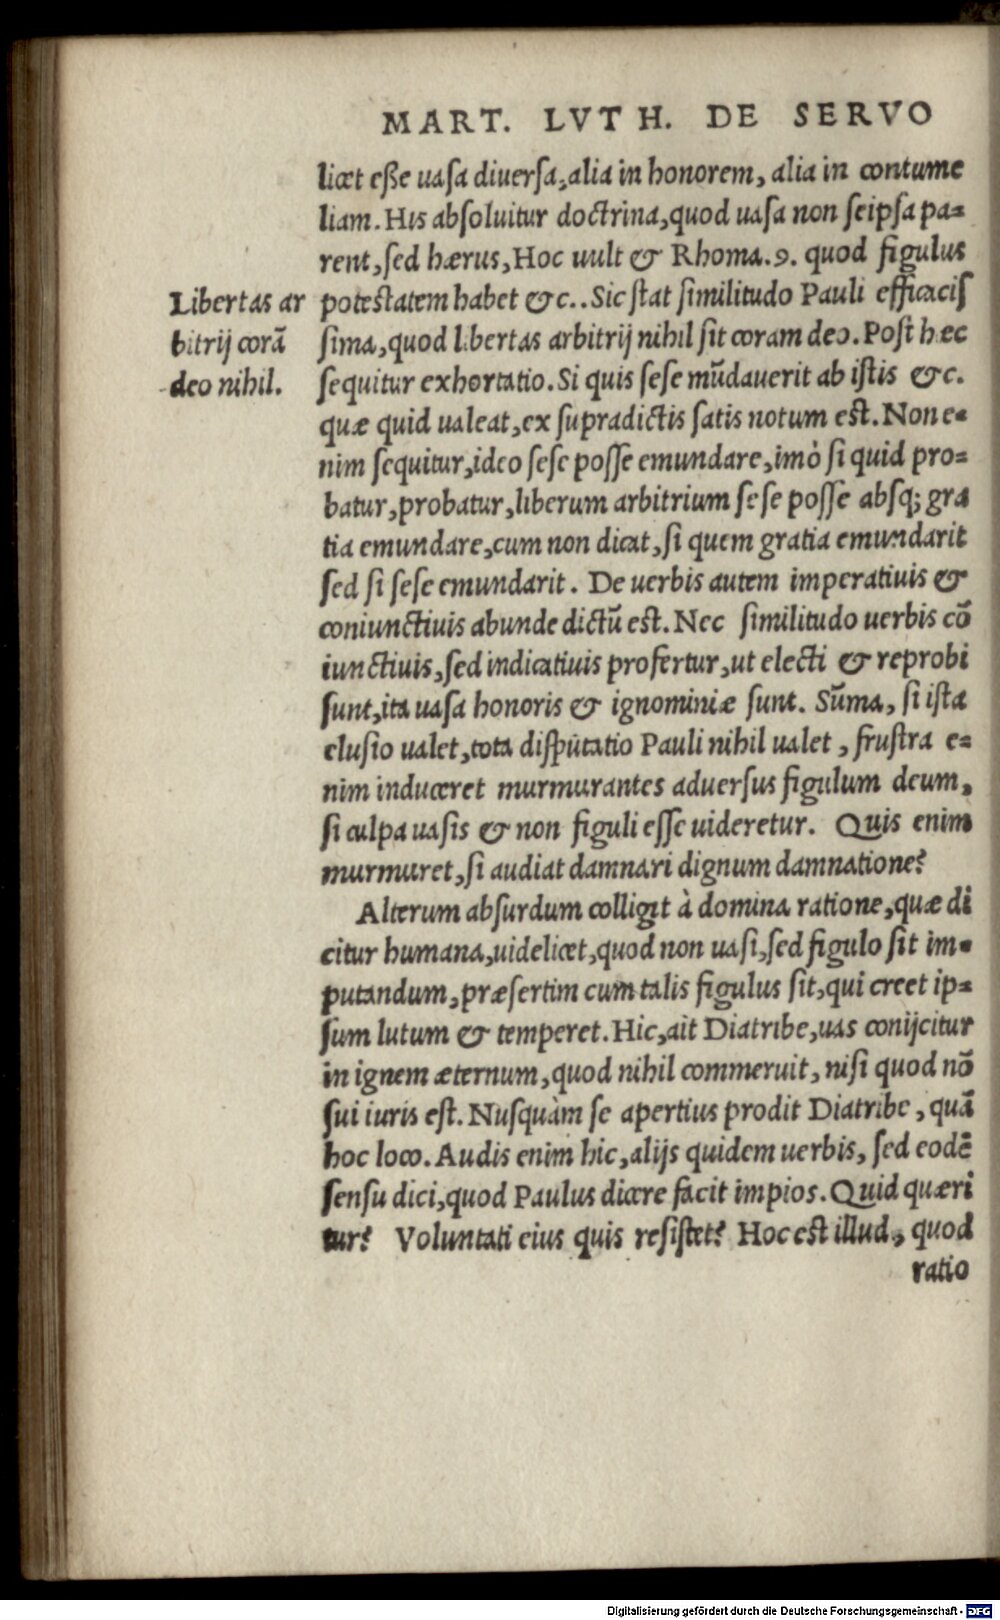 MART. LVTH. DE SERVO
licet eße uasa diuersa, alia in honorem, alia in contume
liam. His absoluitur doctrina, quod uasa non seipsa pa=
rent, sed hærus, Hoc uult & Rhoma. 9. quod figulus
potestatem habet &c.. Sic stat similitudo Pauli efficacis
sima, quod libertas arbitrij nihil sit coram deo. Post hec
sequitur exhortatio. Si quis sese mūdauerit ab istis &c.
quæ quid ualeat, ex supradictis satis notum est. Non e=
nim sequitur, ideo sese posse emundare, imò si quid pro=
batur, probatur, liberum arbitrium sese posse absq; gra
tia emundare, cum non dicat, si quem gratia emundarit
sed si sese emundarit. De uerbis autem imperatiuis &
coniunctiuis abunde dictū est. Nec similitudo uerbis cō
iunctiuis, sed indicatiuis profertur, ut electi & reprobi
sunt, ita uasa honoris & ignominiæ sunt. Sūma, si ista
elusio ualet, tota disputatio Pauli nihil ualet, frustra e=
nim induceret murmurantes aduersus figulum deum,
si culpa uasis & non figuli esse uideretur. Quis enim
murmuret, si audiat damnari dignum damnatione?
Alterum absurdum colligit à domina ratione, quæ di
citur humana, uidelicet, quod non uasi, sed figulo sit im=
putandum, præsertim cum talis figulus sit, qui creet ip=
sum lutum & temperet. Hic, ait Diatribe, uas conijcitur
in ignem æternum, quod nihil commeruit, nisi quod nō
sui iuris est. Nusquàm se apertius prodit Diatribe, quā
hoc loco. Audis enim hic, alijs quidem uerbis, sed eodē
sensu dici, quod Paulus dicere facit impios. Quid quæri
tur? Voluntati eius quis resistet? Hoc est illud, quod
ratio
Libertas ar
bitrij corā
deo nihil.
Digitalisierung gefördert durch die Deutsche Forschungsgemeinschaft - DFG